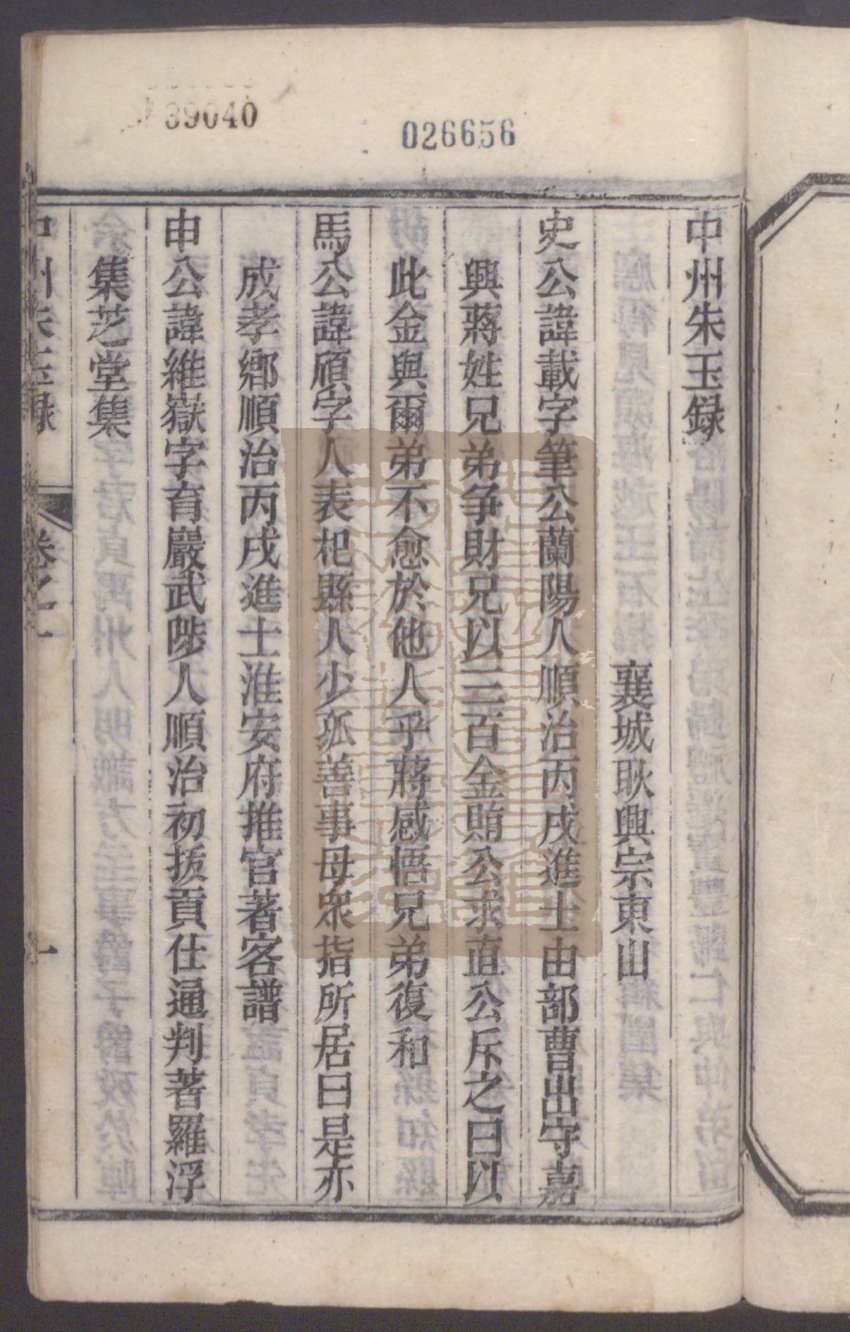 39040
026656
中州朱玉録
襄城耿興宗東山
史公諱載字筆公蘭陽人順治丙戌進士由部曹出守嘉
興蔣姓兄弟争財兄以三百金賄公求直公斥之曰以
此金與爾弟不愈於他人乎蔣感悟兄弟復和
馬公諱頎字人表杞縣人少孤善事母衆指所居曰是亦
成孝鄉順治丙戌進士淮安府推官著客譜
申公諱維嶽字育巖武陟人順治初拔貢仕通判著羅浮
集芝堂集
中州朱玉録 卷之一 一